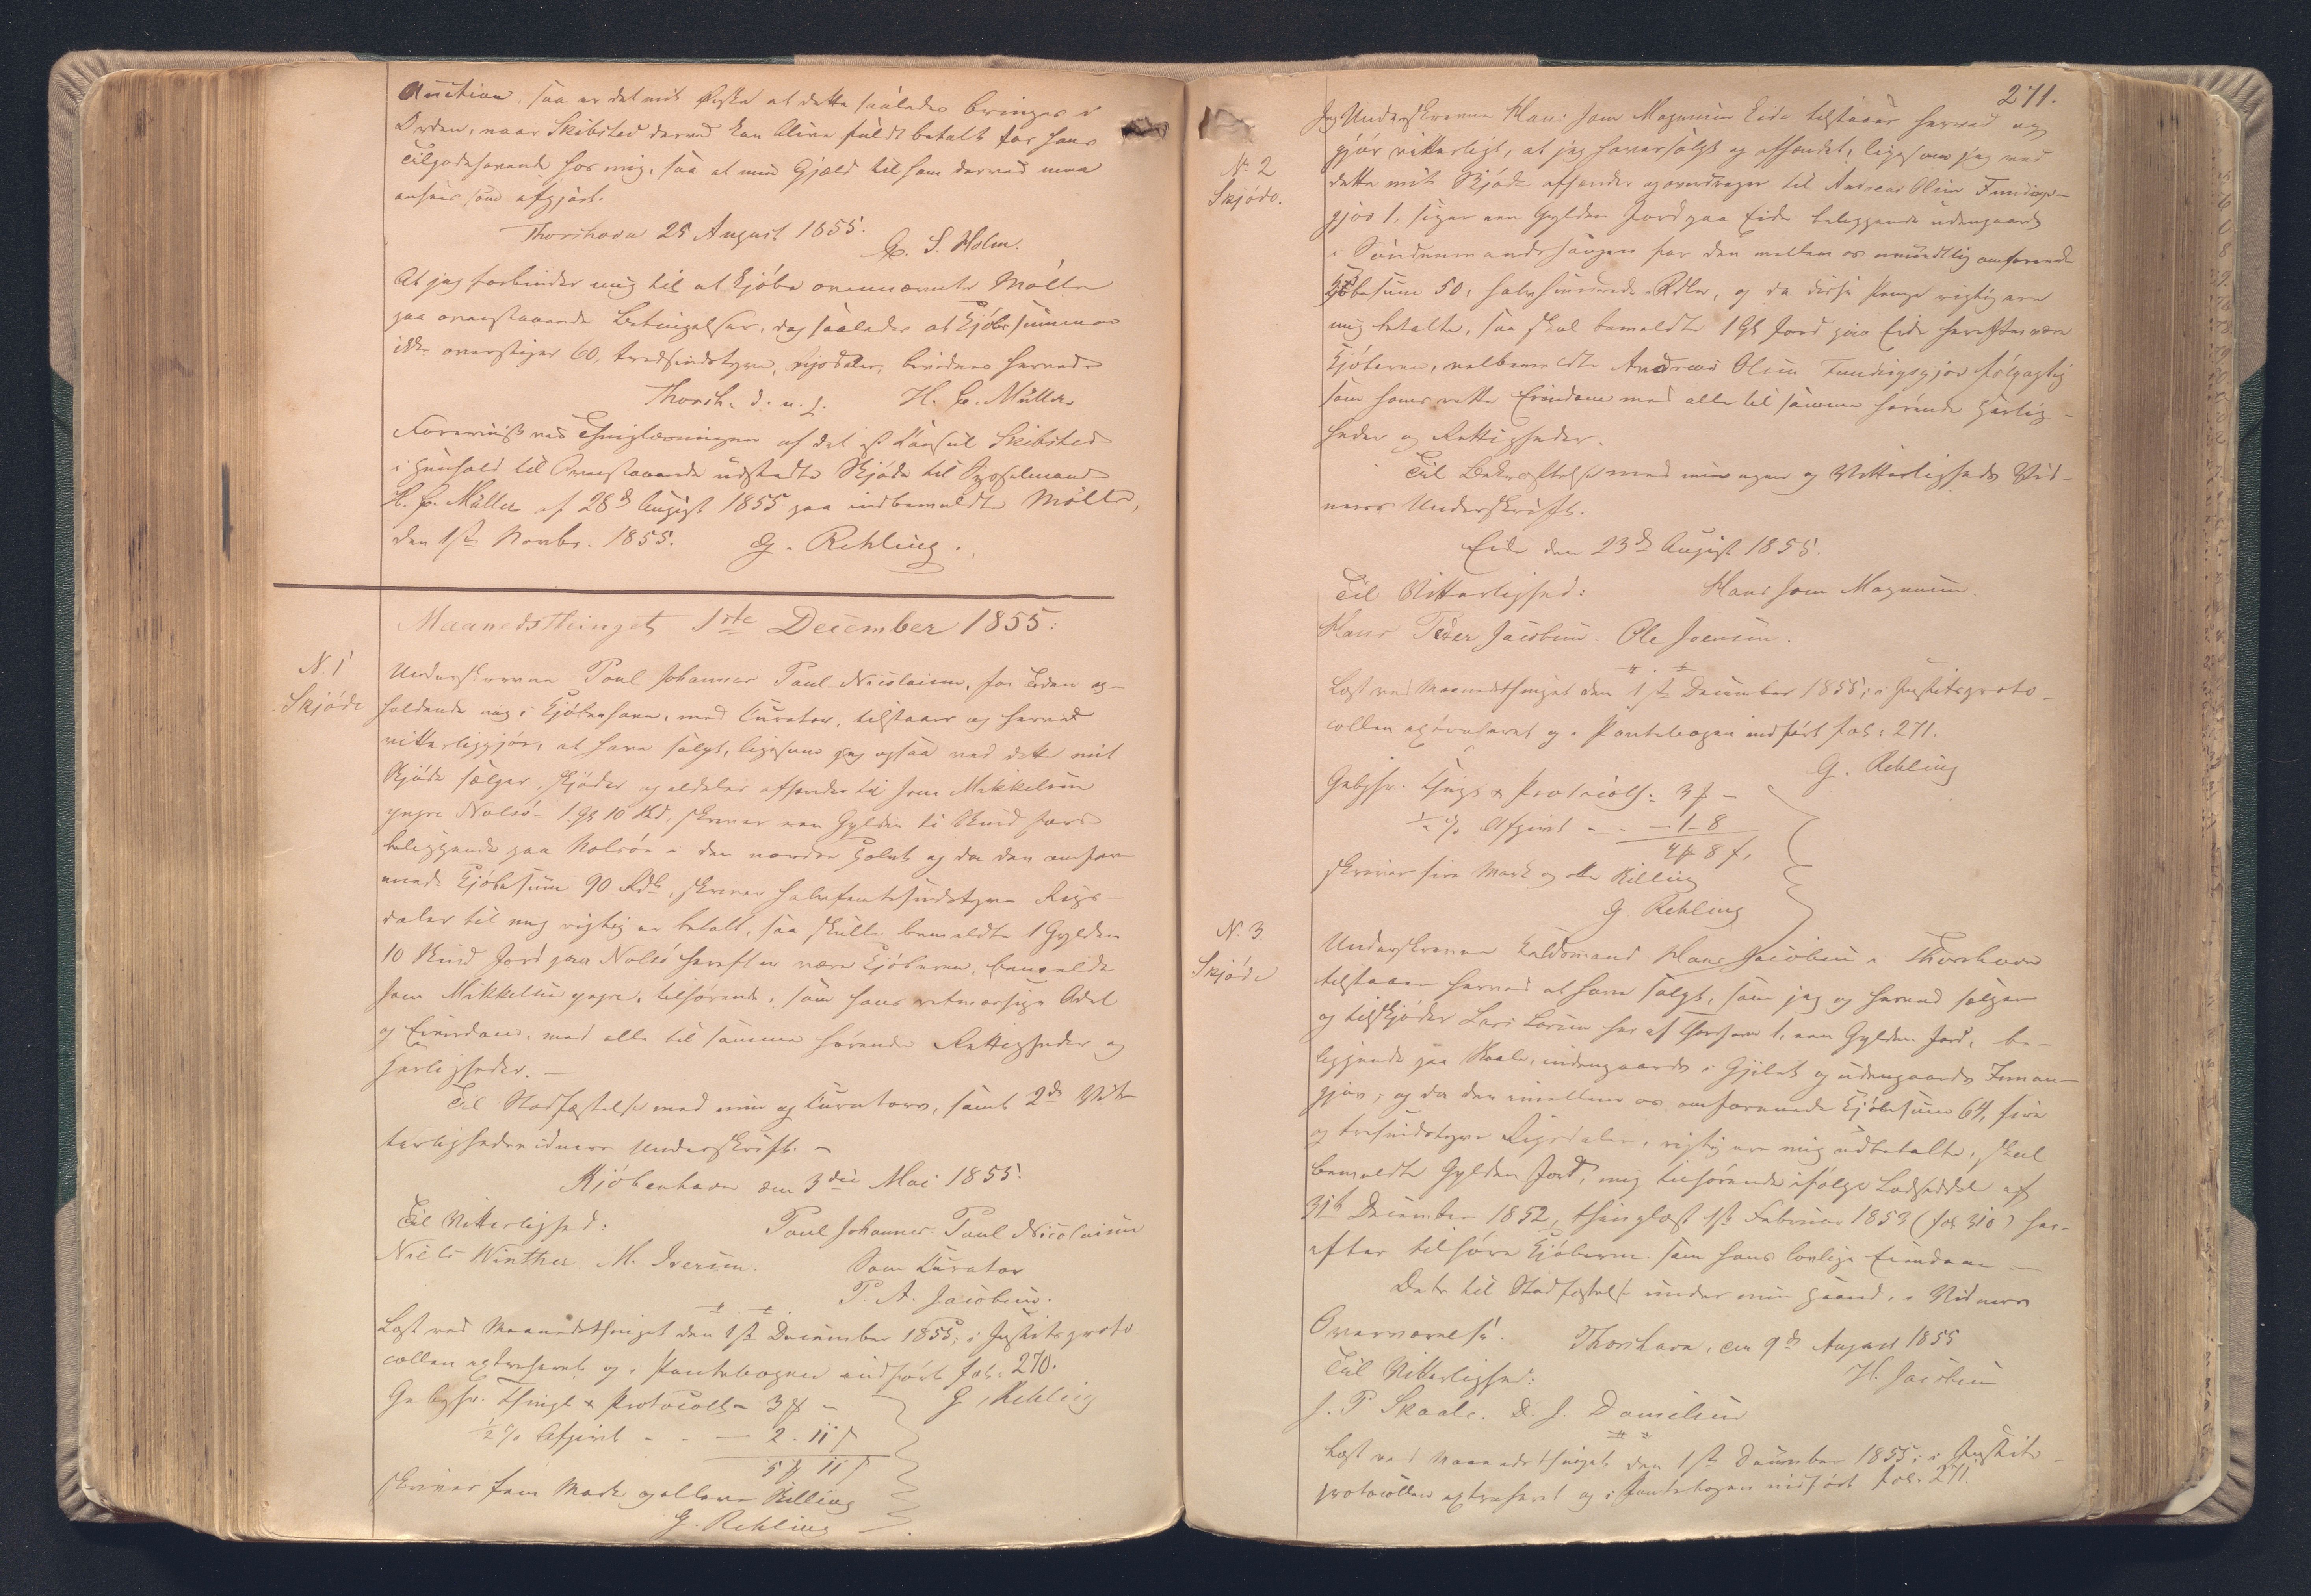 Auction, saa er det mit Ønske at dette saaledes bringes i
Orden, naar Skibsted derved kan blive fuldt betalt for hans
Tilgodehavende hos mig, saa at min Gjæld til ham derved maa
ansees som afgjort.
Thorshavn 25 August 1855.
S. Holm.
At jeg forbinder mig til at kjøbe ovennævnte Mølle
paa ovenstaaende Betingelser, dog saaledes at Kjøbesummen
ikke overstiger 60, tredsindstyve, Rigsdaler, bevidnes herved
Thorsh. d. u. s. H. C. Müller
Foreviist ved Thinglæsningen af det af Consul Skibsted
i Henhold til Ovenstaaende udstedte Skjøde til Sysselmand
H. C. Müller af 28de August 1855 paa indbemeldte Mølle,
den 1ste Novbr. 1855. G. Rehling.
Maanedsthinget 1ste December 1855:
N. 1
Skjøde
Underskrevne Poul Johannes Poul-Nicolaisen, for Tiden op-
holdende mig i Kjøbenhavn, med Curator, tilstaaer og herved
vitterliggjør, at have solgt, ligesom jeg ogsaa ved dette mit
Skjøde sælger, skjøder og aldeles afhænder til Joen Mikkelsen
yngre Nolsø 1 Gl 10 Skd, skriver een Gylden ti Skind Jord
beliggende paa Nolsø i den nordre Hálvt og da den omfor-
enede Kjøbesum 90 Rdlr, skriver halvfemtesindstyve Rigs-
daler til mig rigtig er betalt, saa skulle bemeldte 1 Gylden
10 Skind Jord paa Nolsø herefter være Kjøberen, benævnte
Joen Mikkelsen yngre, tilhørende, som hans retmæssige Odel
og Eiendom, med alle til samme hørende Rettigheder og
Herligheder. —
Til Stadfæstelse med min og Curators, samt 2de Vit-
terlighedsvidners Underskrift. —
Kjøbenhavn den 3die Mai 1855.
Til Vitterlighed: Poul Johannes Poul Nicolaisen
Niels Winther. M. Iversen. Som Curator
P. A. Jacobsen.
Læst ved Maanedsthinget den 1ste December 1855; i Justitsproto-
collen extraheret og i Pantebogen indført fol: 270.
G. Rehling
Gebyhr. Thingl & Protocoll = 3 ℔ —
½ % Afgivt - - — 2 - 11 ß
5 ℔ 11 ß
skriver fem Mark og elleve Skilling
G. Rehling
271.
N. 2
Skjøde.
Jeg Underskrevne Hans Joen Magnusen Eide tilstaaer herved og
gjør vitterligt, at jeg haver solgt og afhændet, ligesom jeg ved
dette mit Skjøde afhænder og overdrager til Andreas Olsen Funnings-
gjov 1, siger een Gylden Jord paa Eide beliggende udengaards
i for den mellem os mundtlig omforenede
Kjøbesum 50, halvhundrede Rdlr, og da disse Penge rigtig ere
mig betalte, saa skal bemeldte 1 Gl Jord paa Eide herefter være
Kjøberen, velbemeldte Andreas Olsen Funningsgjov følgagtig
som hans rette Eiendom med alle til samme hørende Herlig-
heder og Rettigheder.
Til Bekræftelse med min egen og Vitterligheds Vid-
ners Underskrift.
Eide den 23de August 1855.
Til Vitterlighed: Hans Joen Magnusen.
Hans Peder Jacobsen. Ole Joensen.
Læst ved Maanedsthinget den 1ste December 1855; i Justitsproto-
collen extraheret og i Pantebogen indført fol: 271.
G. Rehling
Gebyhr. Thingl & Protocoll: 3 ℔ —
½ % Afgivt - - — 1 - 8
4 ℔ 8 ß
skriver fire Mark og otte Skilling
G. Rehling
N. 3.
Skjøde
Underskrevne Hans Jacobsen i Thorshavn
tilstaaer herved at have solgt, som jeg og herved sælger
og tilskjøder Lars Larsen her af Thorshavn 1, een Gylden Jord, be-
liggende paa Skaale, indengaards i Gjilet og udengaards
gjov, og da den imellem os omforenede Kjøbesum 64, fire
og tresindstyve Rigsdaler, rigtig ere mig udbetalte, skal
bemeldte Gylden Jord, mig tilhørende ifølge Lodseddel af
31te December 1852, thinglæst 1ste Februar 1853 (fol 310) her-
efter tilhøre Kjøberen som hans lovlige Eiendom —
Dette til Stadfæstelse under min Haand, i Vidners
Overværelse.
Thorshavn, den 9de August 1855
Til Vitterlighed: H. Jacobsen
J. P. Skaale. D. J. Danielsen
Læst ved Maanedsthinget den 1ste December 1855; i Justits-
protocollen extraheret og i Pantebogen indført fol: 271.